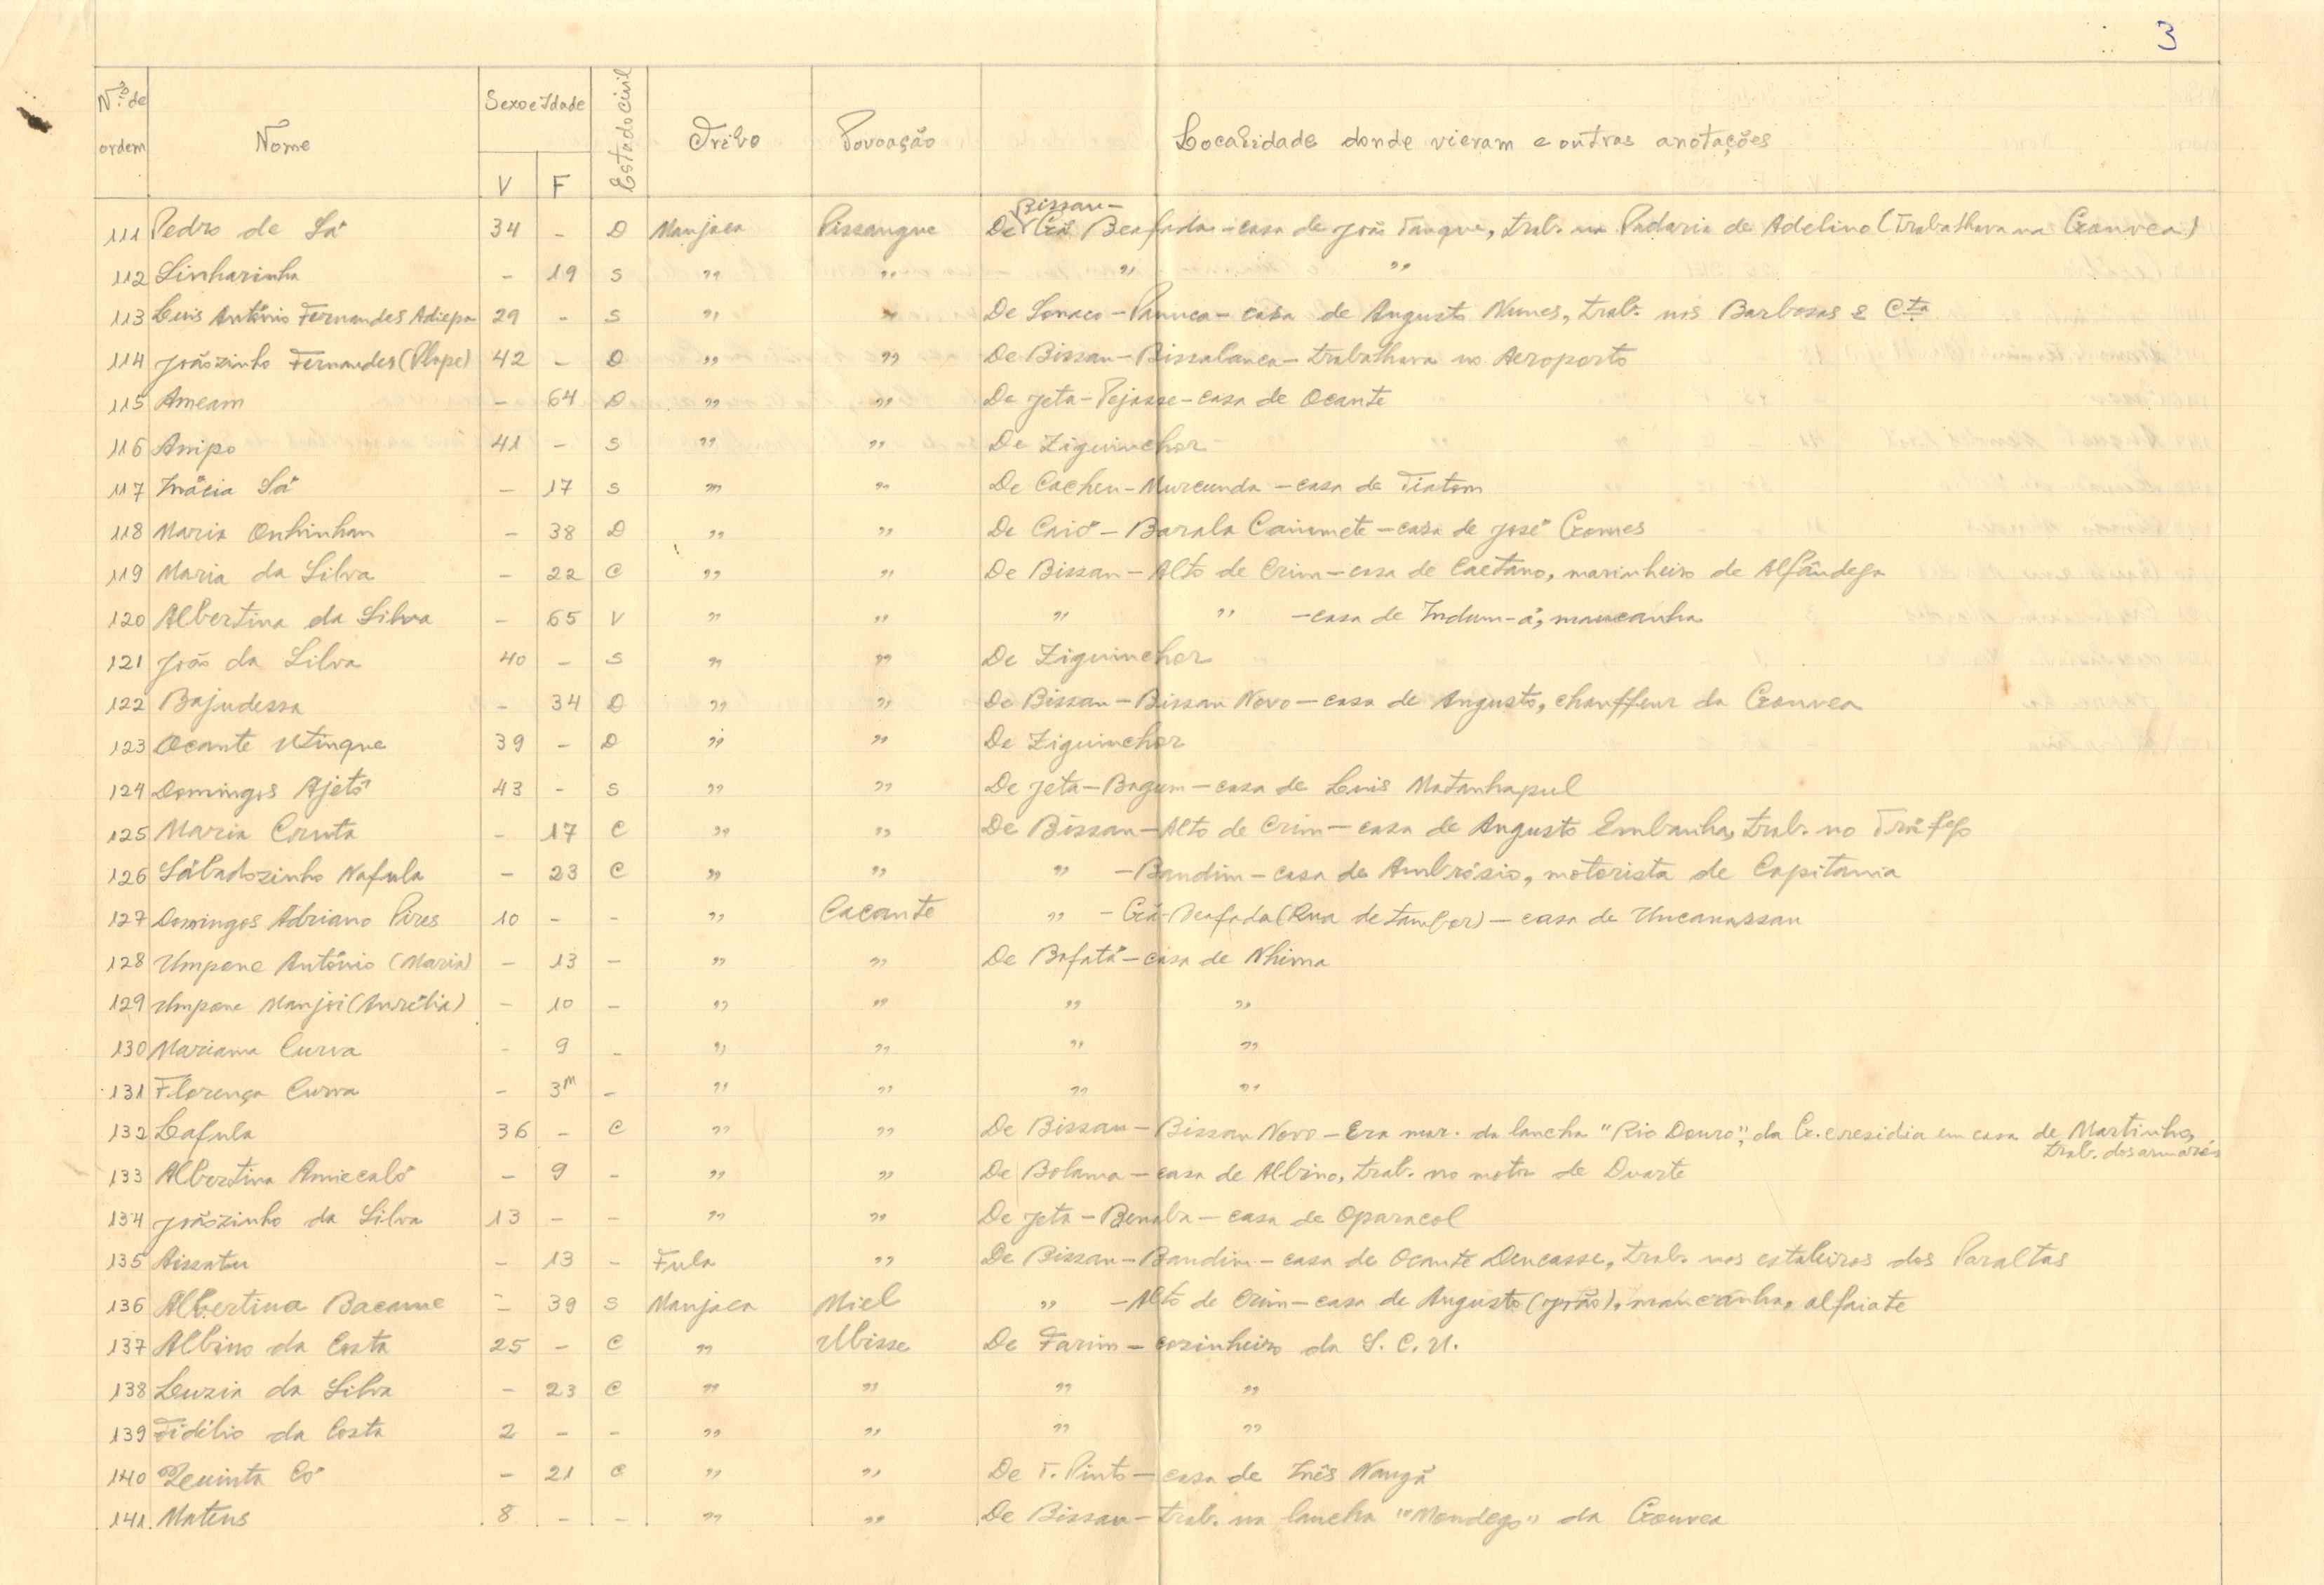 3
Nº de ordem Nome Sexo e Idade V F Estado civil Tribo Povoação Localidade donde vieram e outras anotações
Bissau-
111 Pedro de Sá 34 - D Manjaca Pissangue De Gã Beafada - casa de João Tanque, trab. na Padaria de Adelino (Trabalhava na Gouvea)
112 Linharinha - 19 S " " " "
113 Luis António Fernandes Adiepa 29 - S " " De Sonaco - Panuca - casa de Augusto Nunes, trab. nos Barbosas & Cta
114 Joãozinho Fernandes (Plope) 42 - D " " De Bissau - Bissalanca - trabalhava no Aeroporto
115 Ameam - 64 D " " De Jeta - Pejasse - casa de Ocante
116 Anipo 41 - S " " De Ziguinchor
117 Inácia Sá - 17 S " " De Cacheu - Murcunda - casa de Tiatom
118 Maria Onhinhan - 38 D " " De Caió - Barala Caiomete - casa de José Gomes
119 Maria da Silva - 22 C " " De Bissau - Alto de Crim - casa de Caetano, marinheiro de Alfândega
120 Albertina da Silva - 65 V " " " " - casa de Indum-á, mancanha
121 João da Silva 40 - S " " De Ziguinchor
122 Bajudessa - 34 D " " De Bissau - Bissau Novo - casa de Augusto, chauffeur da Gouvea
123 Ocante Utinque 39 - D " " De Ziguinchor
124 Domingos Ajetó 43 - S " " De Jeta - Bagum - casa de Luis Matanhapul
125 Maria Cruta - 17 C " " De Bissau - Alto de Crim - casa de Augusto Embanha, trab. no Tráfego
126 Sábadozinho Nafula - 23 C " " " - Bandim - casa de Ambrósio, motorista de Capitania
127 Domingos Adriano Pires 10 - - " Cacante " - Gã-Beafada (Rua de tambor) - casa de Uncanassau
128 Umpane António (Maria) - 13 - " " De Bafatá - casa de Nhima
129 Umpane Manjoi (Aurélia) - 10 - " " " "
130 Mariama Curva - 9 - " " " "
131 Florença Curva - 3M - " " " "
132 Lafula 36 - C " " De Bissau - Bissau Novo - Era mar. da lancha "Rio Douro", da G. e residia em casa de Martinho,
trab. dos armazéns
133 Albertina Amiecaló - 9 - " " De Bolama - casa de Albino, trab. no motor de Duarte
134 Joãozinho da Silva 13 - - " " De Jeta - Benaba - casa de Oparacol
135 Aissatu - 13 - Fula " De Bissau - Bandim - casa de Ocante Dencasse, trab. nos estaleiros dos Paraltas
136 Albertina Bacame - 39 S Manjaca Miel " - Alto de Crim - casa de Augusto (João), mancanha, alfaiate
137 Albino da Costa 25 - C " Ubisse De Farim - cozinheiro da S. C. U.
138 Luzia da Silva - 23 C " " " "
139 Fidélio da Costa 2 - - " " " "
140 Quinta Có - 21 C " " De T. Pinto - casa de Inês Nangã
141 Mateus 8 - - " " De Bissau - trab. na lancha "Mondego" da Gouvea